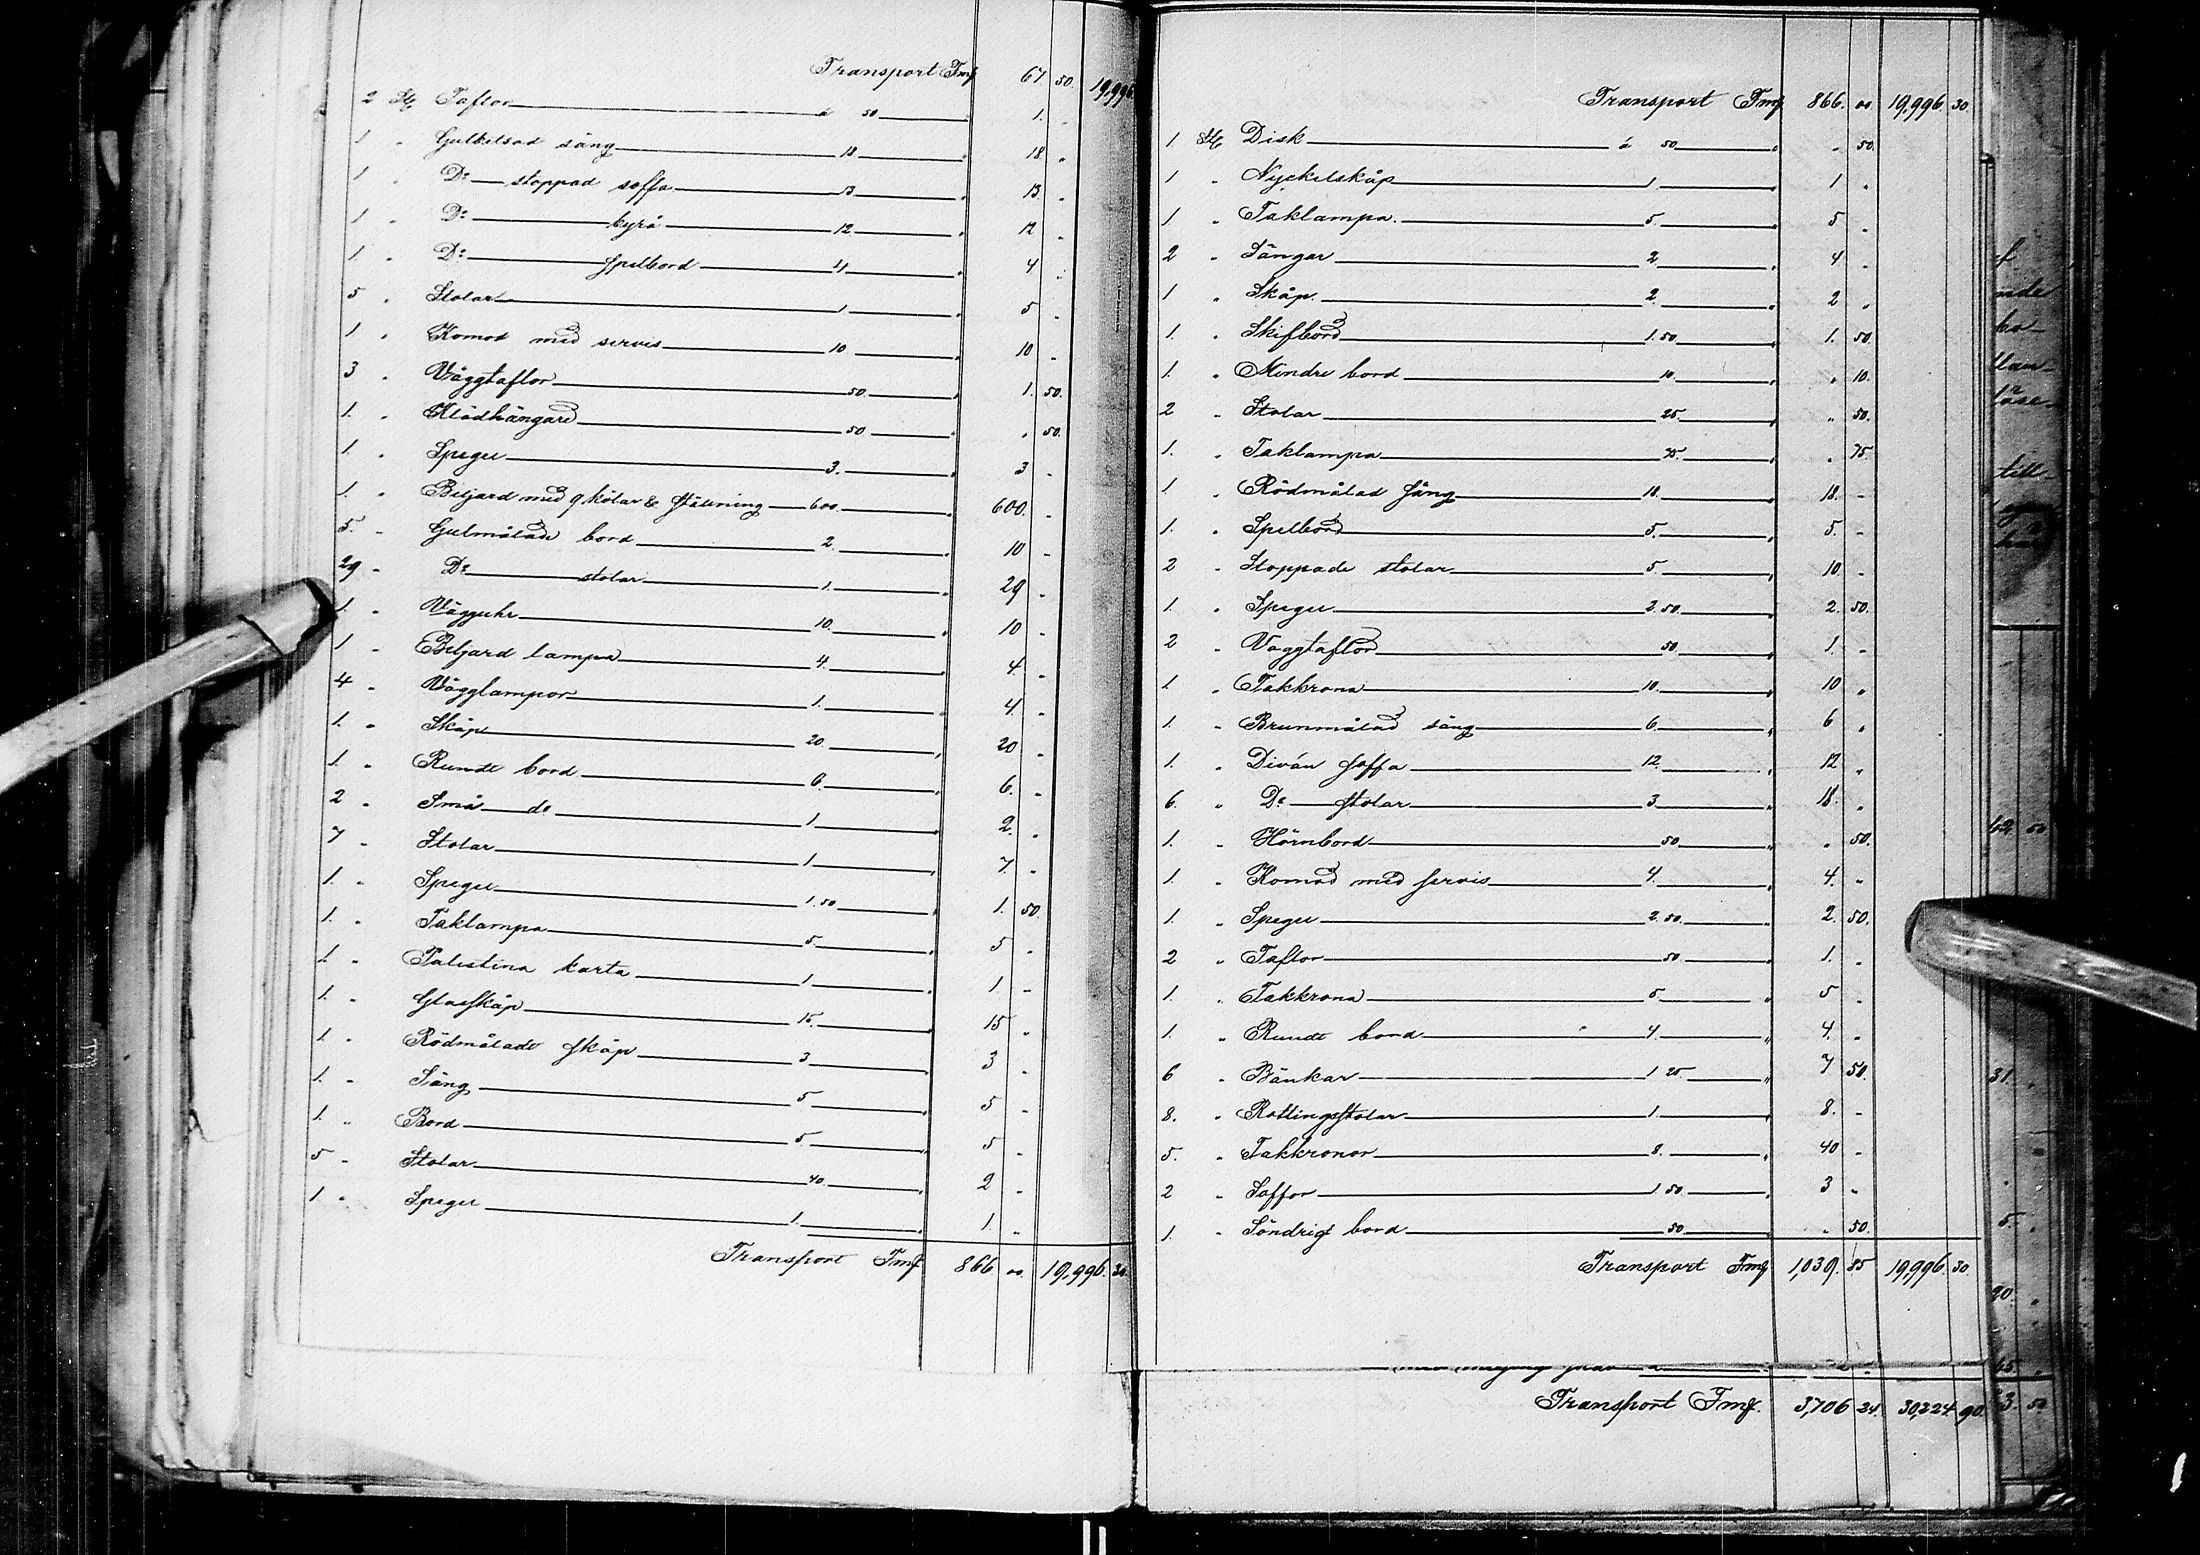 Transport Fmk 67 50 19,996
2 St. Taflor á 50 " 1. "
1 " Gulbetsad säng 18 " 18 "
1 " Do stoppad soffa 13 " 13 "
1 " Do byrå 12 " 12 "
1 " Do spelbord 4 " 4 "
5 " Stolar 1 " 5 "
1 " Komod med servis 10 " 10 "
3 " Väggtaflor 50 " 1. 50.
1. " Klädhängare 50 " " 50.
1. " Spegel 3. " 3 "
1. " Biljard med 9 köiar & ställning 600. " 600. "
5. " Gulmålade bord 2. " 10 "
29 " Do stolar 1. " 29 "
1. " Vägguhr 10. " 10 "
1 " Biljard lampa 4. " 4. "
4 " Vägglampor 1. " 4. "
1. " Skåp 20. " 20 "
1. " Rundt bord 6. " 6. "
2 " Små do 1 " 2. "
7 " Stolar 1 " 7 "
1. " Spegel 1.50 " 1. 50.
1. " Taklampa 5. " 5 "
1. " Palestina karta 1 " 1 "
1. " Glasskåp 15. " 15 "
1 " Rödmålade skåp 3 " 3 "
1. " Säng 5 " 5 "
1. " Bord 5. " 5 "
5 " Stolar 40. " 2 "
1 " Spegel 1. " 1. "
Transport Fmk 866 00. 19,996. 30.
Transport Fmk 866. 00 19,996 30.
1 St. Disk á 50 " " 50.
1 " Nyckelskåp 1 " 1 "
1 " Taklampa. 5. " 5 "
2 " Sängar 2 " 4 "
1 " Skåp. 2. " 2 "
1. " Skifbord 1.50 " 1. 50.
1. " Mindre bord 10. " " 10.
2 " Stolar 25 " " 50.
1. " Taklampa 75. " " 75.
1 " Rödmålad säng 18. " 18. "
1. " Spelbord 5. " 5. "
2 " Stoppade stolar 5 " 10. "
1. " Spegel 2.50. " 2. 50.
2 " Väggtaflor 50. " 1. "
1 " Takkrona 10. " 10 "
1. " Brunmålad säng 6. " 6 "
1. " Diván soffa 12. " 12 "
6. " Do stolar 3 " 18. "
1. " Hörnbord 50 " " 50.
1. " Komod med servis 4. " 4. "
1. " Spegel 2.50. " 2. 50.
2 " Taflor 50 " 1. "
1. " Takkrona 5 " 5 "
1. " Rundt bord 4. " 4. "
6 " Bänkar 1 25 " 7 50.
8. " Rottingsstolar 1. " 8. "
5. " Takkronor 8. " 40 "
2 " Soffor 1 50. " 3 "
1. " Söndrigt bord 50 " " 50.
Transport Fmk 1,039. 85 19,996. 30.
Transport Fmk. 3,706 24. 30,224. 90.